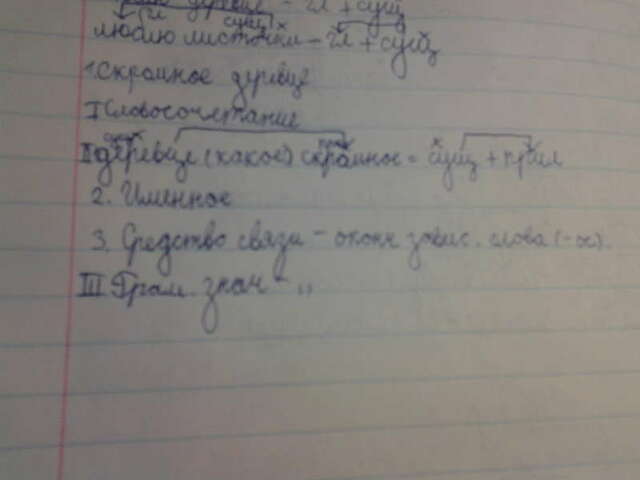 деревце - гл + сущ
гл сущ х
люблю листочки - гл + сущ
1. Скромное деревце
I Словосочетание
II деревце (какое) скромное = сущ + прил
2. Именное
3. Средство связи - оконч завис. слова (-ое).
III Грам. знач - ,,